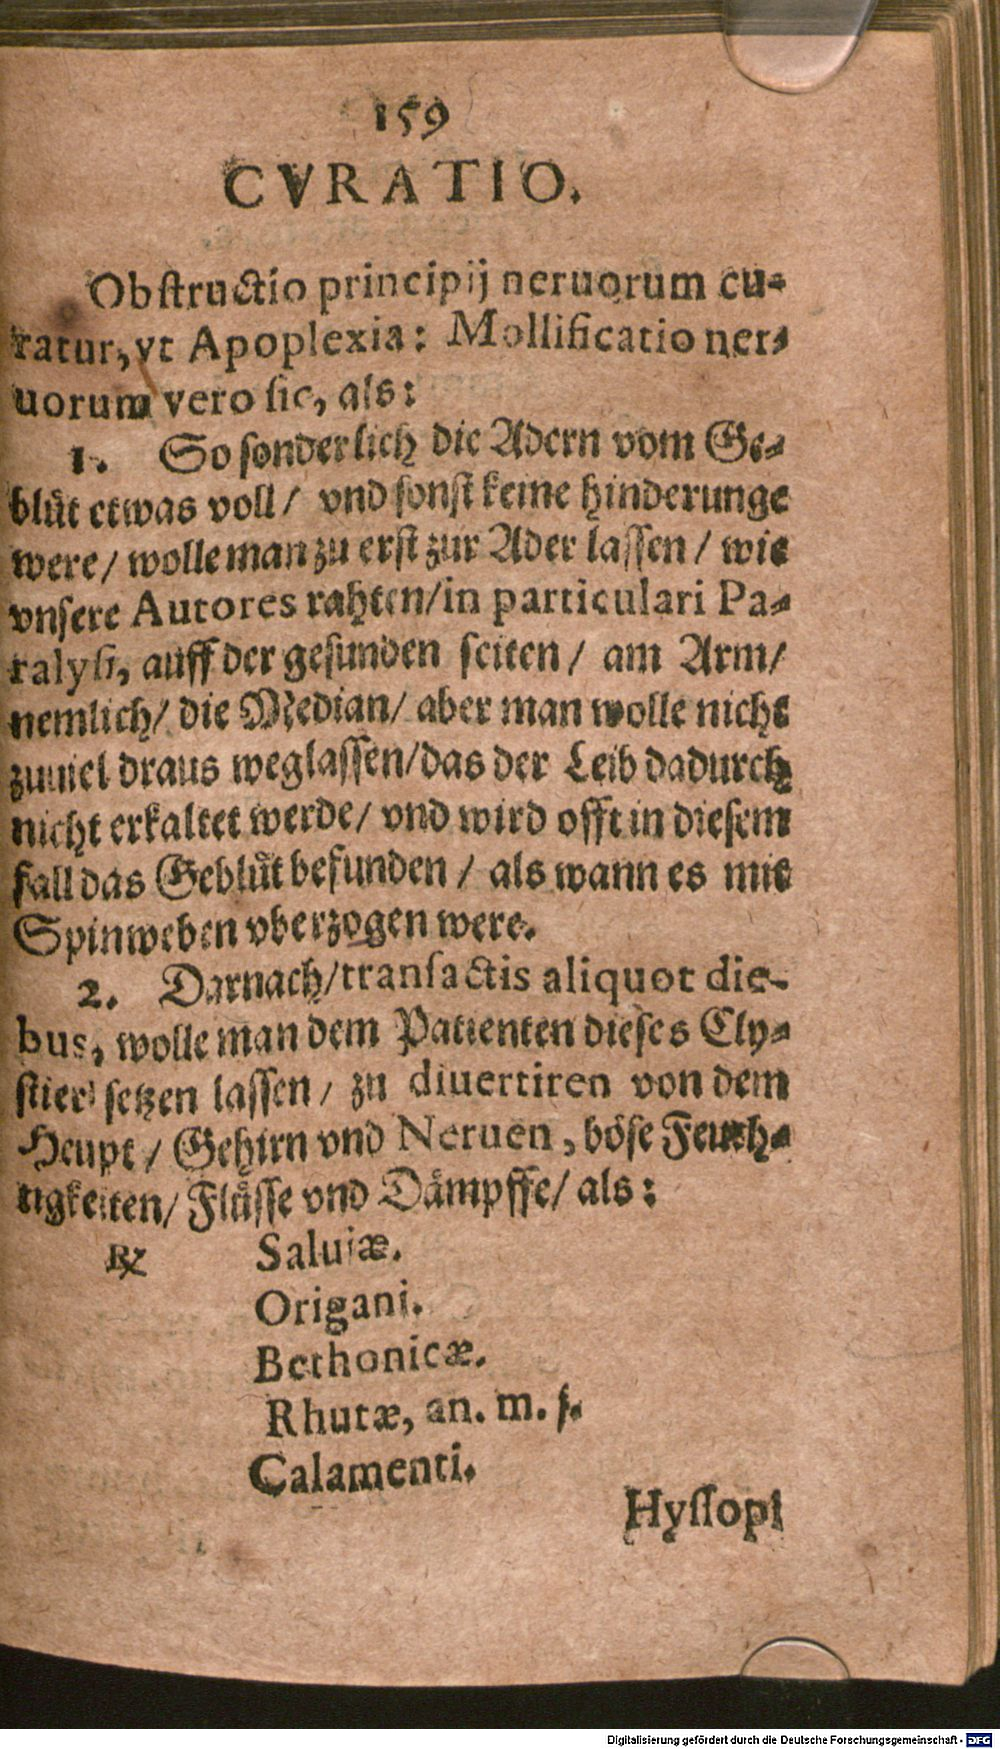 159
CVRATIO.
Obſtructio principij neruorum cu-
ratur, vt Apoplexia: Mollificatio ner-
uorum vero ſic, als:
1. So ſonderlich die Adern vom Ge-
blůt etwas voll/ vnd ſonſt keine hinderunge
were/ wolle man zu erſt zur Ader laſſen/ wie
vnſere Autores rahten/ in particulari Pa-
ralyſi, auff der geſunden ſeiten/ am Arm/
nemlich/ die Median/ aber man wolle nicht
zuuiel draus weglaſſen/ das der Leib dadurch
nicht erkaltet werde/ vnd wird offt in dieſem
fall das Geblůt befunden/ als wann es mit
Spinweben vberzogen were.
2. Darnach/ transactis aliquot die-
bus, wolle man dem Patienten dieſes Cly-
ſtier ſetzen laſſen/ zu diuertiren von dem
Heupt/ Gehirn vnd Neruen, böſe Feuch-
tigkeiten/ Flůſſe vnd Dämpffe/ als:
℞ Saluiæ.
Origani.
Bethonicæ.
Rhutæ, an. m. ſ.
Calamenti.
Hyſſopi
Digitalisierung gefördert durch die Deutsche Forschungsgemeinschaft - DFG